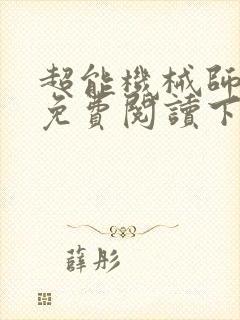 超能機械師
免費閱讀下
薛彤